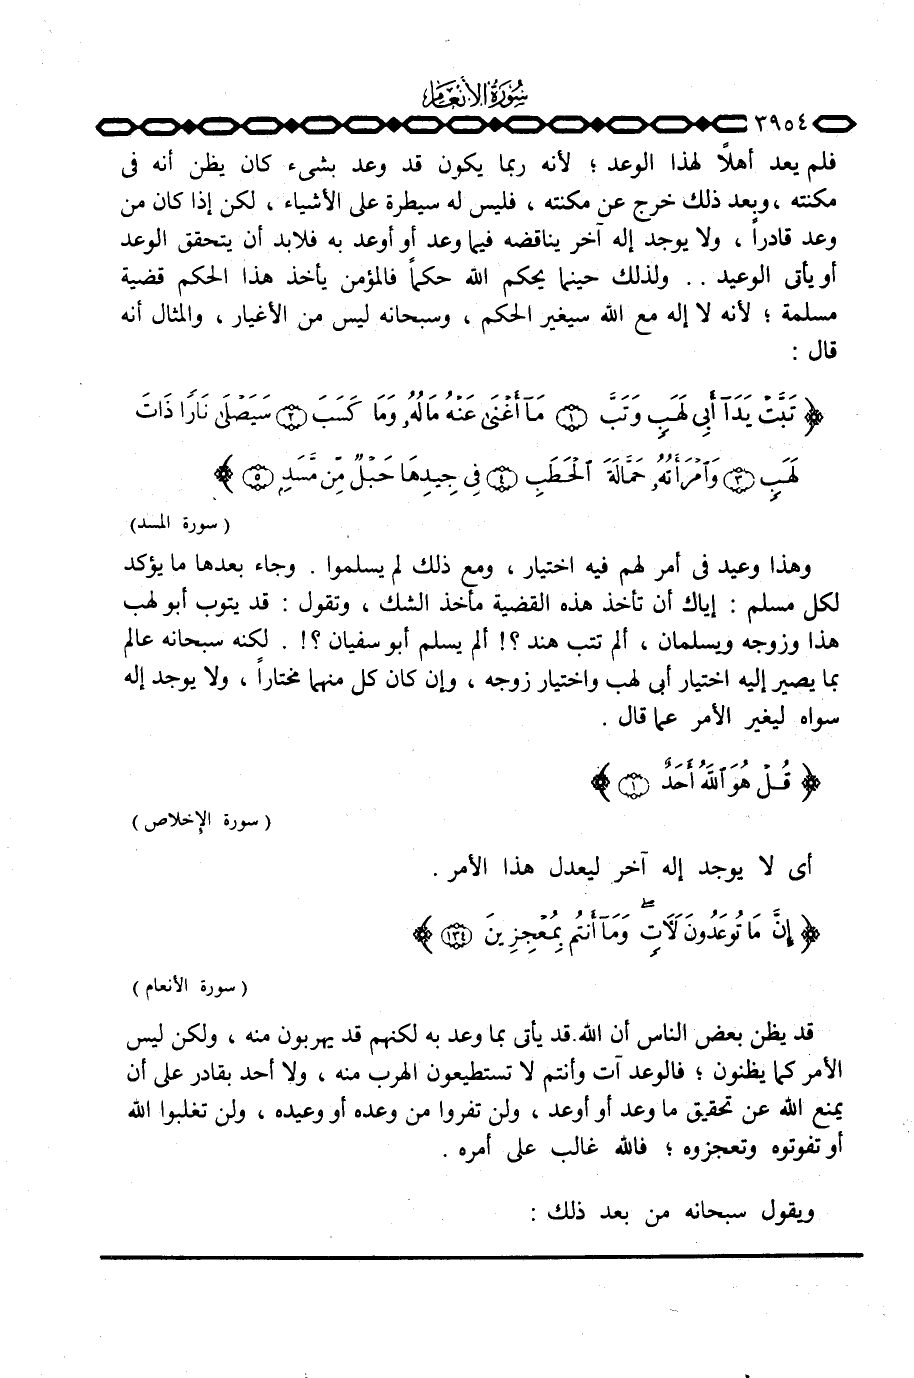 سورة الأنعام
٣٩٥٤
فلم يعد أهلاً لهذا الوعد ؛ لأنه ربما يكون قد وعد بشىء كان يظن أنه فى
مكنته ،وبعد ذلك خرج عن مكنته ، فليس له سيطرة على الأشياء ، لكن إذا كان من
وعد قادراً ، ولا يوجد إله آخر يناقضه فيما وعد أو أوعد به فلابد أن يتحقق الوعد
أو يأتى الوعيد .. ولذلك حينما يحكم الله حكماً فالمؤمن يأخذ هذا الحكم قضية
مسلمة ؛ لأنه لا إله مع الله سيغير الحكم ، وسبحانه ليس من الأغيار ، والمثال أنه
قال :
﴿ تَبَّتْ يَدَآ أَبِى لَهَبٍ وَتَبَّ ۝١ مَآ أَغْنَىٰ عَنْهُ مَالُهُۥ وَمَا كَسَبَ ۝٢ سَيَصْلَىٰ نَارًا ذَاتَ
لَهَبٍ ۝٣ وَٱمْرَأَتُهُۥ حَمَّالَةَ ٱلْحَطَبِ ۝٤ فِى جِيدِهَا حَبْلٌ مِّن مَّسَدٍۭ ۝٥ ﴾
( سورة المسد)
وهذا وعيد فى أمر لهم فيه اختيار ، ومع ذلك لم يسلموا . وجاء بعدها ما يؤكد
لكل مسلم : إياك أن تأخذ هذه القضية مأخذ الشك ، وتقول : قد يتوب أبو لهب
هذا وزوجه ويسلمان ، ألم تتب هند ؟! ألم يسلم أبو سفيان ؟! . لكنه سبحانه عالم
بما يصير إليه اختيار أبى لهب واختيار زوجه ، وإن كان كل منهما مختاراً ، ولا يوجد إله
سواه ليغير الأمر عما قال .
﴿ قُلْ هُوَ ٱللَّهُ أَحَدٌ ۝١ ﴾
( سورة الإخلاص )
أى لا يوجد إله آخر ليعدل هذا الأمر .
﴿ إِنَّ مَا تُوعَدُونَ لَـَٔاتٍ ۖ وَمَآ أَنتُم بِمُعْجِزِينَ ۝١٣٤ ﴾
( سورة الأنعام )
قد يظن بعض الناس أن الله.قد يأتى بما وعد به لكنهم قد يهربون منه ، ولكن ليس
الأمر كما يظنون ؛ فالوعد آت وأنتم لا تستطيعون الهرب منه ، ولا أحد بقادر على أن
يمنع الله عن تحقيق ما وعد أو أوعد ، ولن تفروا من وعده أو وعيده ، ولن تغلبوا الله
أو تفوتوه وتعجزوه ؛ فالله غالب على أمره .
ويقول سبحانه من بعد ذلك :